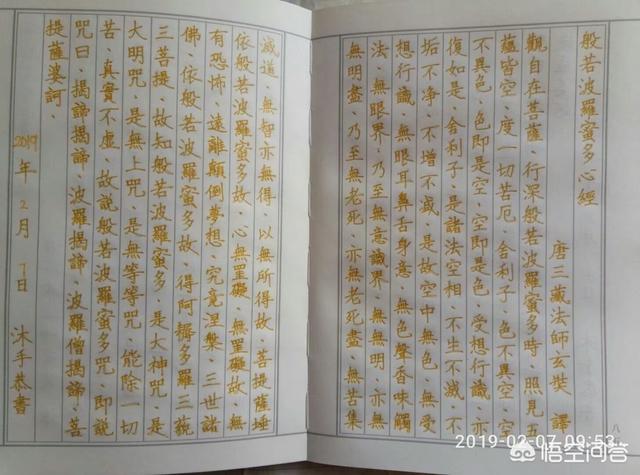 般若波羅蜜多心經
唐三藏法師玄奘 譯
觀自在菩薩、行深般若波羅蜜多時、照見五
蘊皆空、度一切苦厄、舍利子、色不異空、空
不異色、色即是空、空即是色、受想行識、亦
復如是、舍利子、是諸法空相、不生不滅、不
垢不净、不增不減、是故空中無色、無受
想行識、無眼耳鼻舌身意、無色聲香味觸
法、無眼界、乃至無意識界、無無明、亦無
無明盡、乃至無老死、亦無老死盡、無苦集
滅道、無智亦無得、以無所得故、菩提薩埵
依般若波羅蜜多故、心無罣礙、無罣礙故、無
有恐怖、遠離顛倒夢想、究竟涅槃、三世諸
佛、依般若波羅蜜多故、得阿耨多羅三藐
三菩提、故知般若波羅蜜多、是大神咒、是
大明咒、是無上咒、是無等等咒、能除一切
苦、真實不虛、故說般若波羅蜜多咒、即說
咒曰、揭諦揭諦、波羅揭諦、波羅僧揭諦、菩
提薩婆訶、
2019年2月7日 沐手恭書
八
2019-02-07 09:53
悟空问答